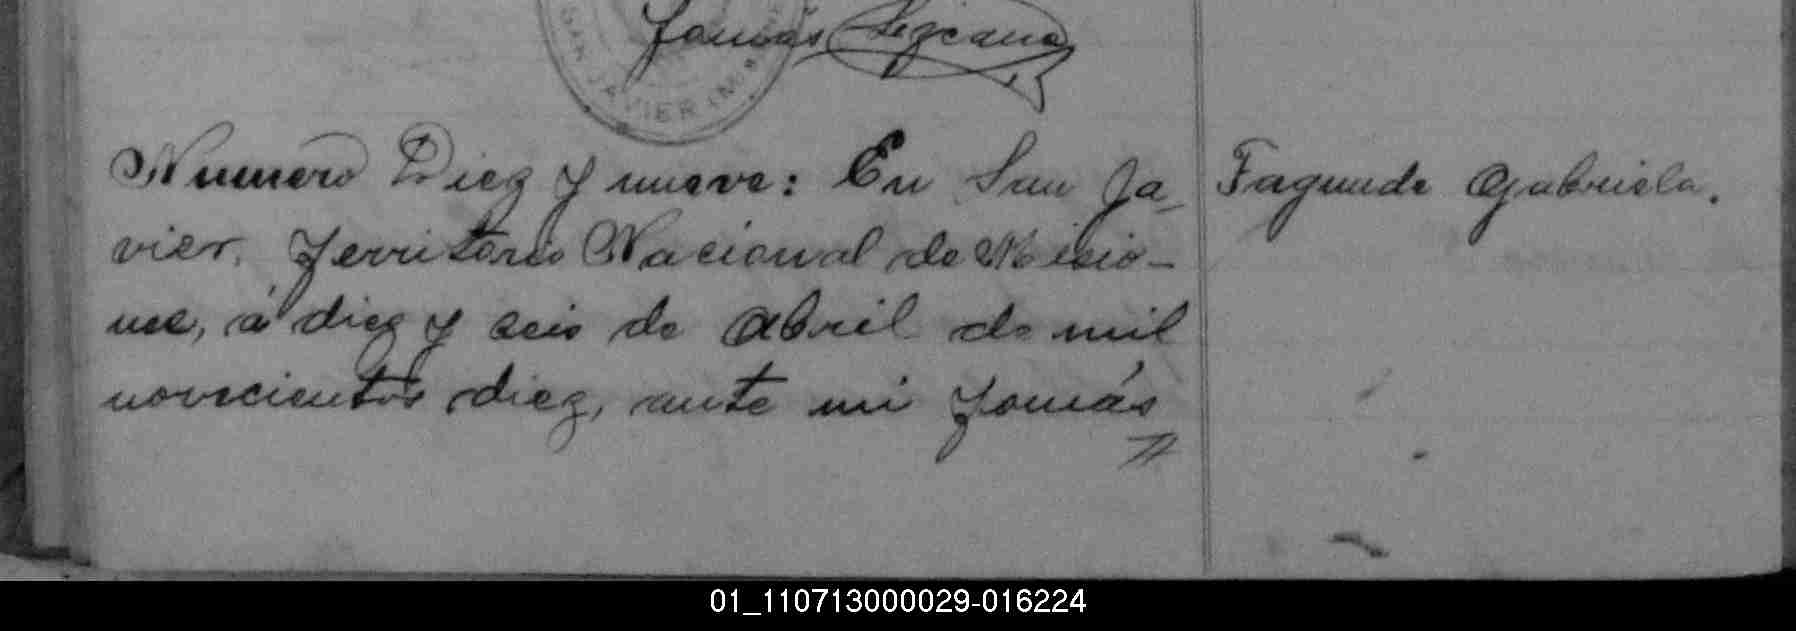 Tomás Lezcano
SAN JAVIER (MISIONES
Numero Diez y nueve: En San Ja-
vier, Territorio Nacional de Misio-
nes, á diez y seis de Abril de mil
novecientos diez, ante mi Tomás
Fagunde Gabriela.
01_110713000029-016224